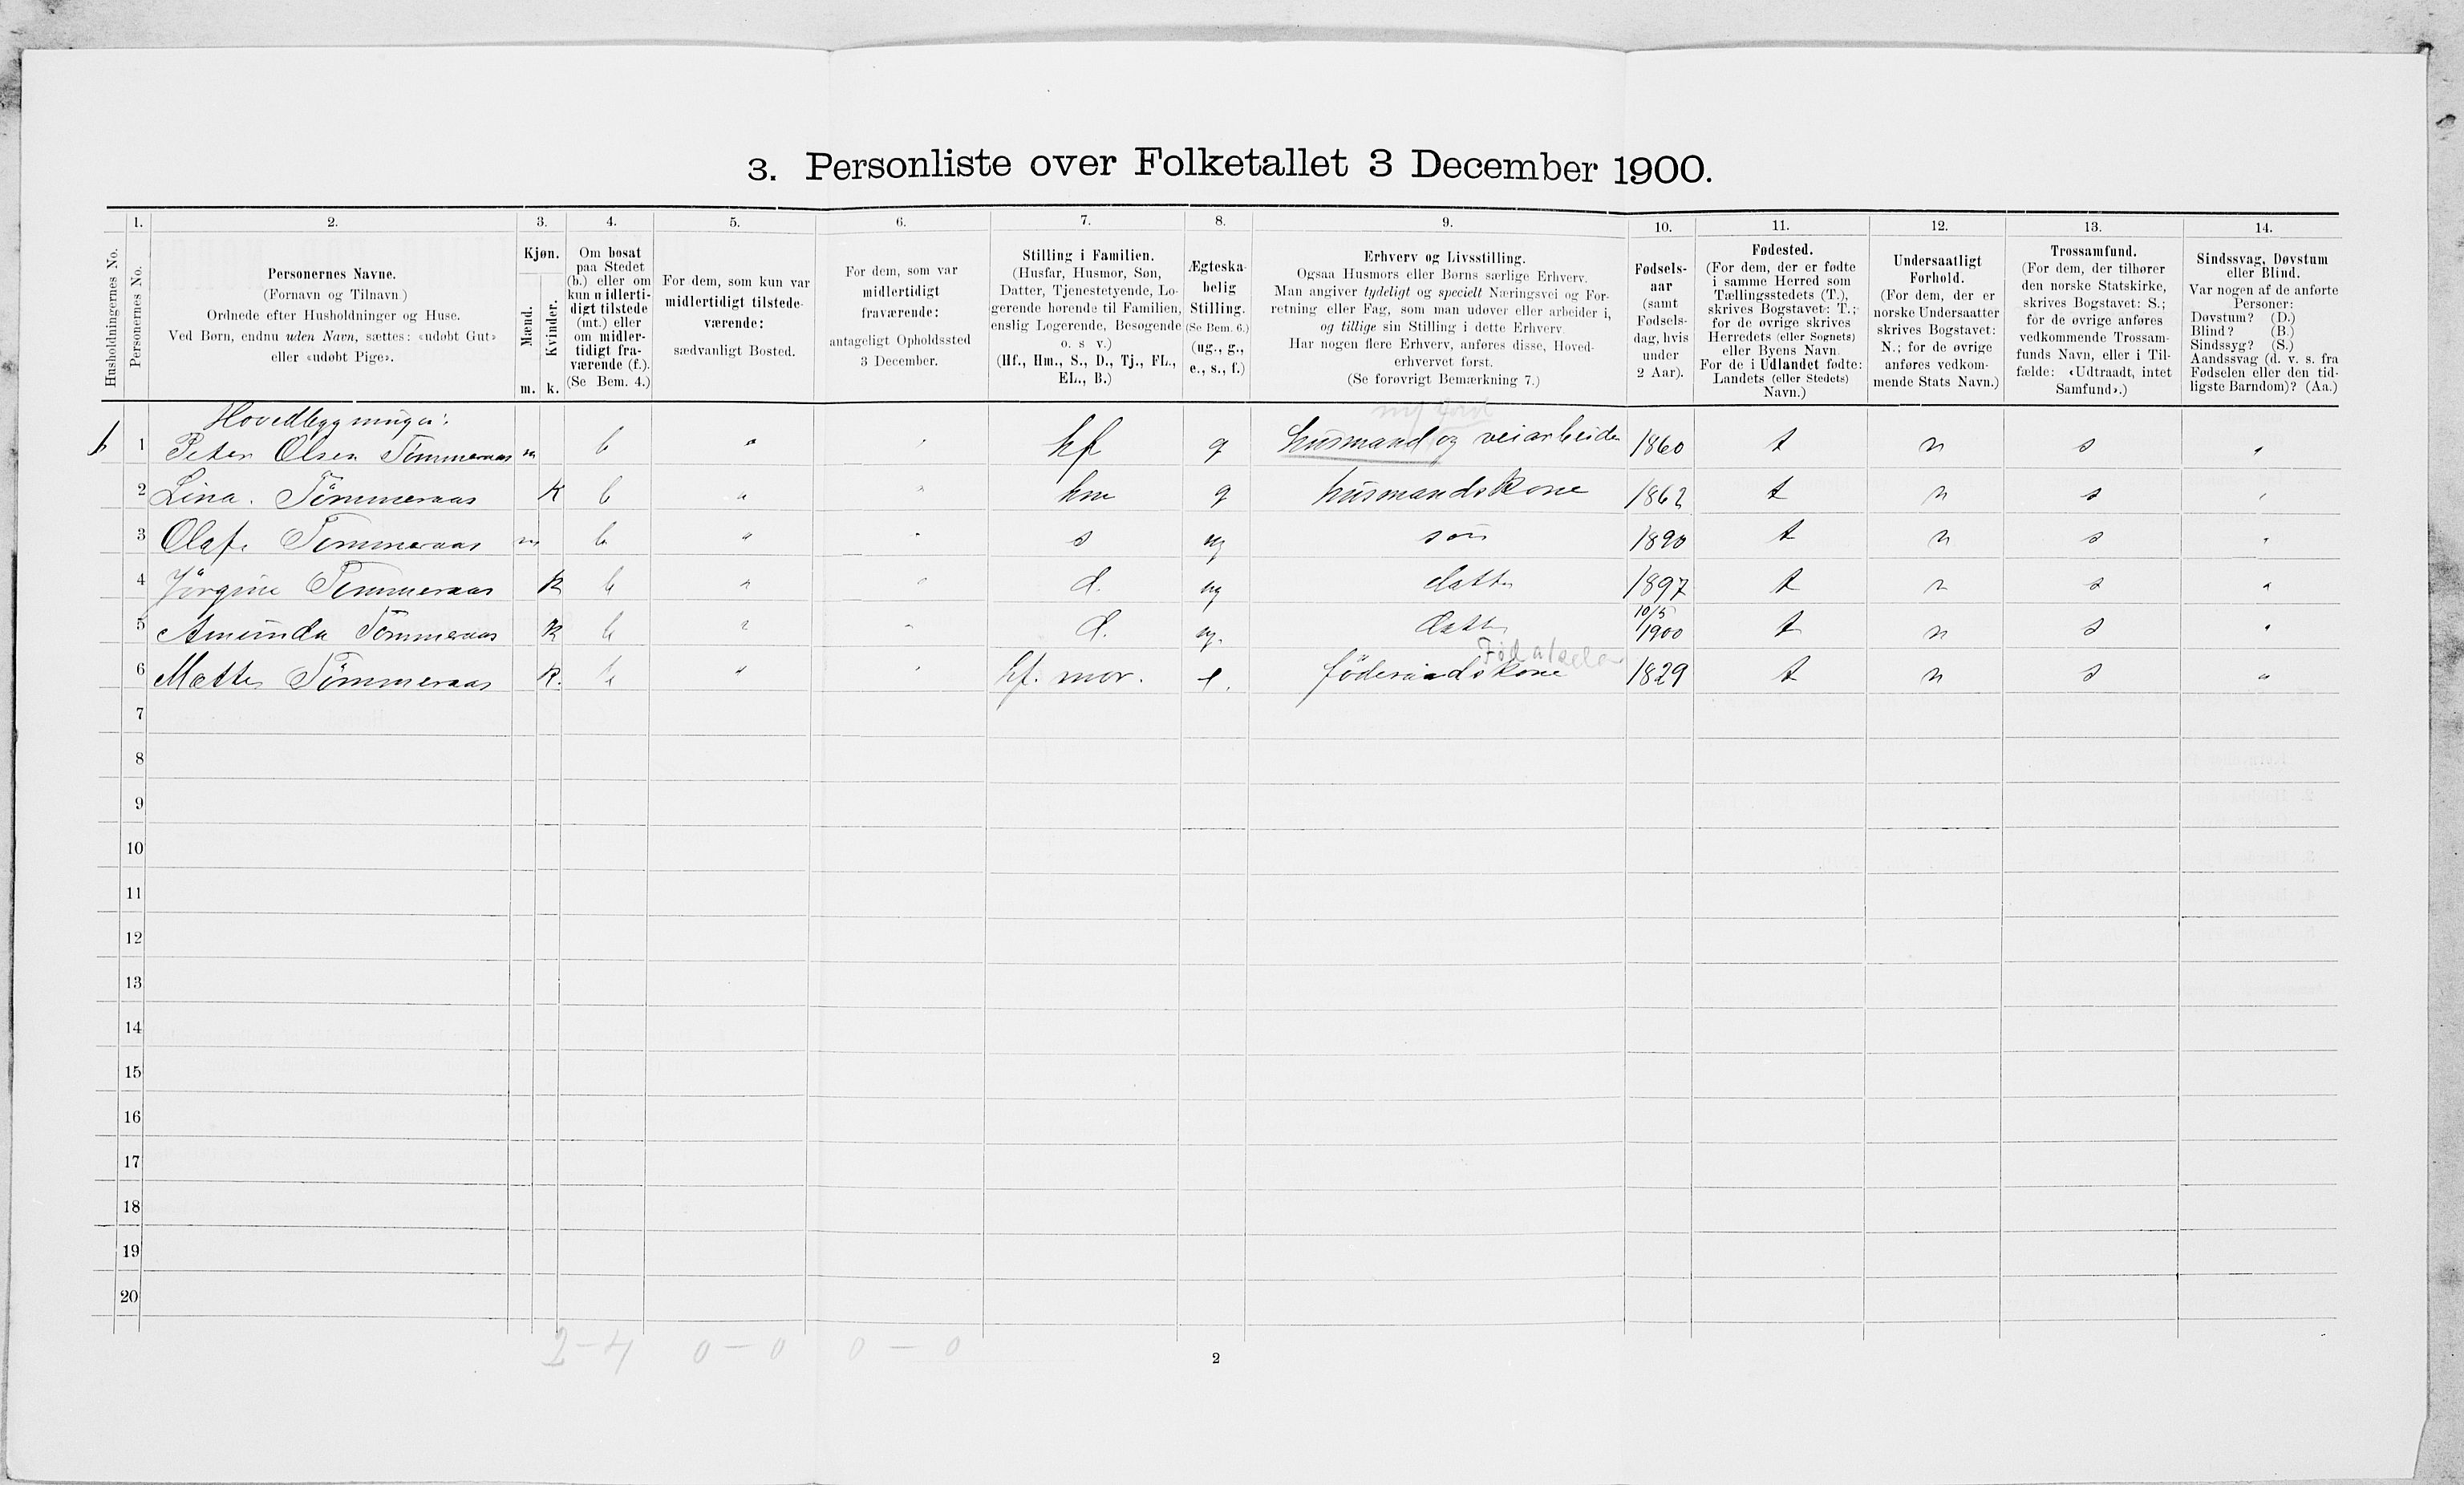 3. Personliste over Folketallet 3 December 1900.
Husholdningernes No.
1.
Personernes No.
2.
Personernes Navne.
(Fornavn og Tilnavn.)
Ordnede efter Husholdninger og Huse.
Ved Børn, endnu uden Navn, sættes: «udøbt Gut»
eller «udøbt Pige».
3.
Kjøn.
Mænd.
Kvinder.
m. k.
4.
Om bosat
paa Stedet
(b.) eller om
kun midlerti-
digt tilstede
(mt.) eller
om midler-
tidigt fra-
værende (f.).
(Se Bem. 4.)
5.
For dem, som kun var
midlertidigt tilstede-
værende:
sædvanligt Bosted.
6.
For dem, som var
midlertidigt
fraværende:
antageligt Opholdssted
3 December.
7.
Stilling i Familien.
(Husfar, Husmor, Søn,
Datter, Tjenestetyende, Lo-
gerende hørende til Familien,
enslig Logerende, Besøgende
o. s v.)
(Hf., Hm., S., D., Tj., FL.,
EL., B.)
8.
Ægteska-
belig
Stilling.
(Se Bem. 6.)
(ug., g.,
e., s., f.)
9.
Erhverv og Livsstilling.
Ogsaa Husmors eller Børns særlige Erhverv.
Man angiver tydeligt og specielt Næringsvei og For-
retning eller Fag, som man udøver eller arbeider i,
og tillige sin Stilling i dette Erhverv.
Har nogen flere Erhverv, anføres disse, Hoved-
erhvervet først.
(Se forøvrigt Bemærkning 7.)
10.
Fødsels-
aar
(samt
Fødsels-
dag, hvis
under
2 Aar).
11.
Fødested.
(For dem, der er fødte
i samme Herred som
Tællingsstedets (T.),
skrives Bogstavet: T.;
for de øvrige skrives
Herredets (eller Sognets)
eller Byens Navn.
For de i Udlandet fødte:
Landets (eller Stedets)
Navn.)
12.
Undersaatligt
Forhold.
(For dem, der er
norske Undersaatter
skrives Bogstavet:
N.; for de øvrige
anføres vedkom-
mende Stats Navn.)
13.
Trossamfund.
(For dem, der tilhører
den norske Statskirke,
skrives Bogstavet: S.;
for de øvrige anføres
vedkommende Trossam-
funds Navn, eller i Til-
fælde: «Udtraadt, intet
Samfund».)
14.
Sindssvag, Døvstum
eller Blind.
Var nogen af de anførte
Personer:
Døvstum? (D.)
Blind? (B.)
Sindssyg? (S.)
Aandssvag (d. v. s. fra
Fødselen eller den tid-
ligste Barndom)? (Aa.)
Hovedbygningen:
1 Peter Olsen Tømmeraas m b " " hf g husmand og veiarbeider 1860 t n s "
2 Lina. Tømmeraas k b " " hm g husmandskone 1862 t n s "
3 Olaf. Tømmeraas m b " " s ug søn 1890 t n s "
4 Jørgine Tømmeraas k b " " d. ug datter 1897 t n s "
5 Amunda Tømmeraas k b " " d. ug. datter 10/5 1900 t n s "
6 Mette Tømmeraas k. b " " hf. mor. e. føderaadskone 1829 t n s "
7
8
9
10
11
12
13
14
15
16
17
18
19
20
2-4 0-0 0-0
2